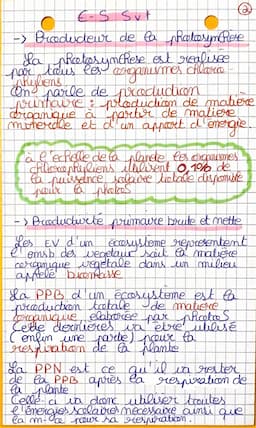 ②
E-S Svt
-> Producteur de la photosynthèse
La photosynthèse est réalisée
par tous les organismes chloro
phyliens.
On parle de production
primaire : production de matière
organique à partir de matière
minérale et d'un apport d'énergie.
à l'échelle de la planète les organismes
chlorophyliens utilisent 0,1% de
la puissance solaire totale disponible
pour la photoS
-> Productivité primaire brute et nette
Les EV d'un écosystème représentent
l'emsb des végétaux soit la matière
organique végétale dans un milieu
appelé biomasse
La PPB d'un écosystème est la
production totale de matière
organique élaborée par photoS
Cette dernières va être utilisé
(enfin une partie) pour la
respiration de la plante
La PPN est ce qu'il va rester
de la PPB après la respiration de
la plante
Celle-a va donc utiliser toutes
l'énergies solaires nécessaire ainsi que
la m. pour sa respiration.